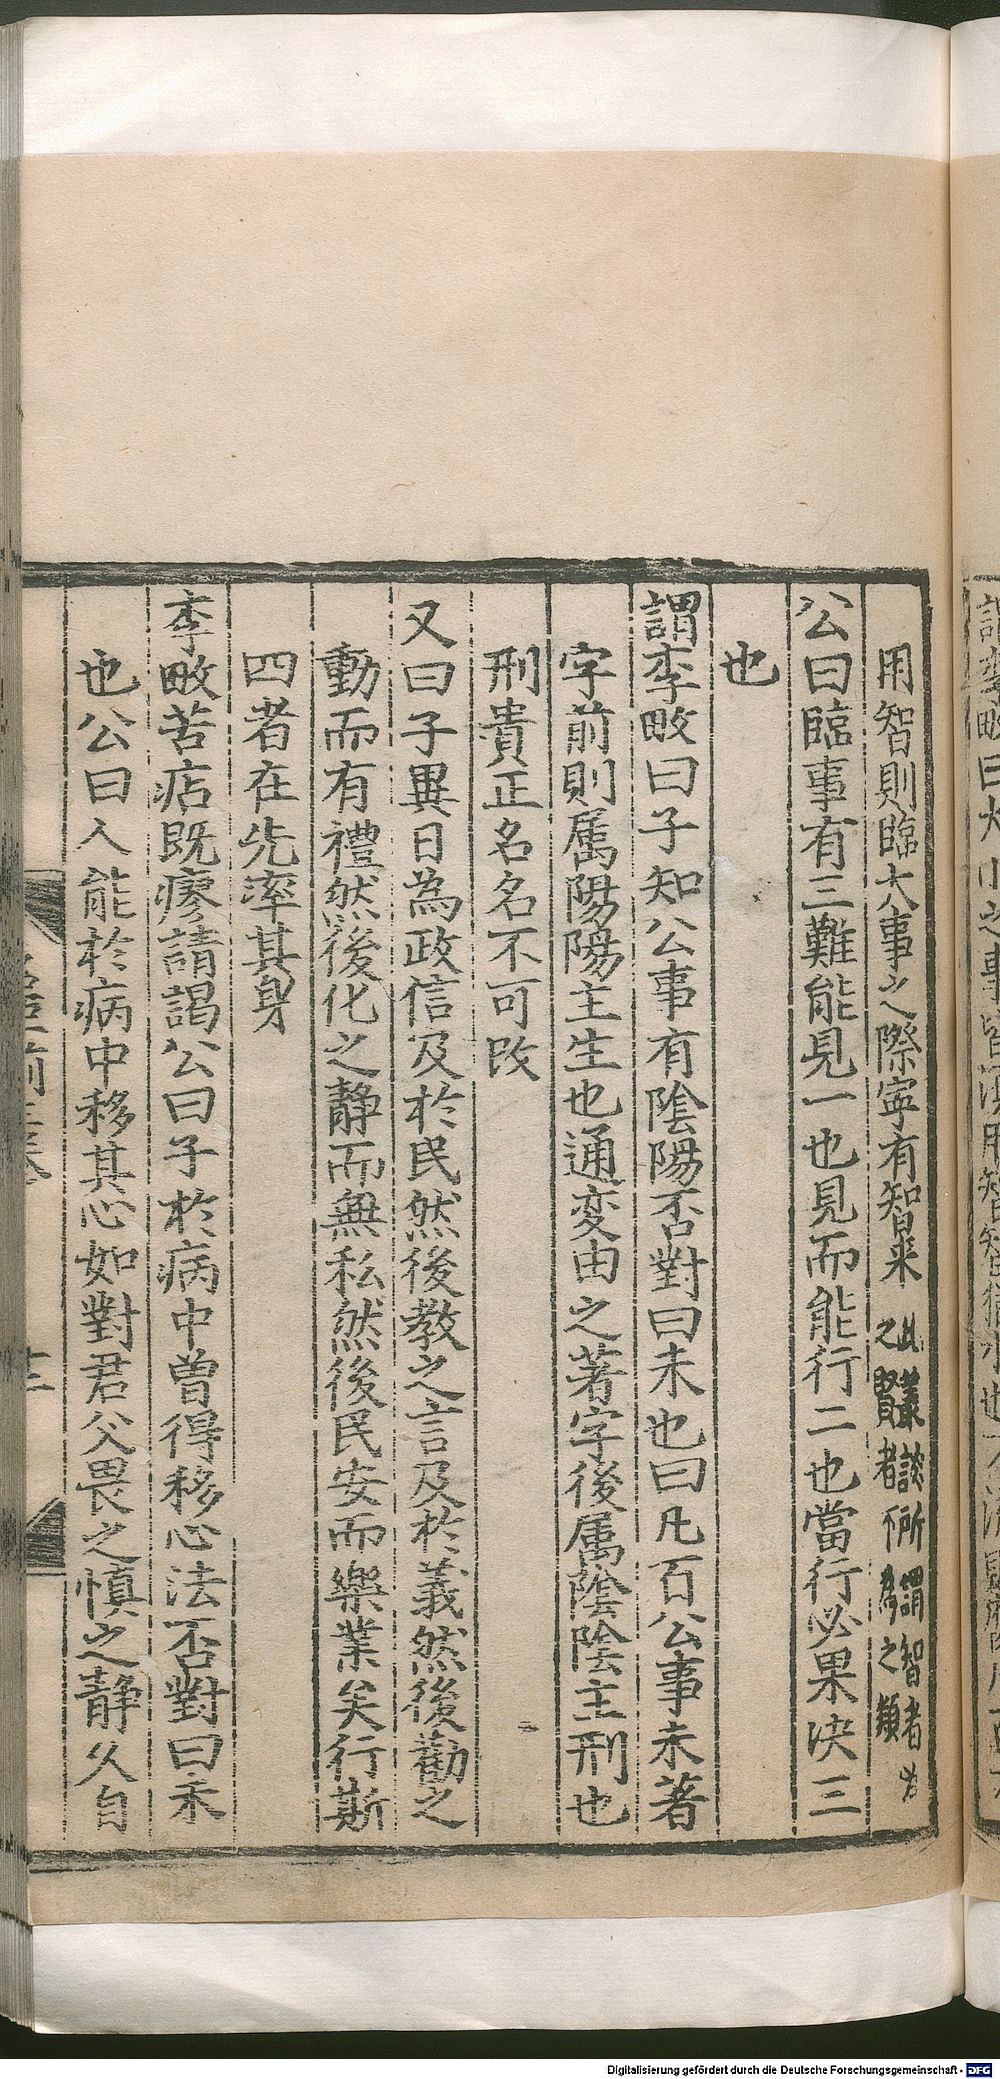 用智則臨大事之際寧有智来 此叢談所謂智者
之賢者不為之類
公曰臨事有三難能見一也見而能行二也當行必果决三
也
謂李畋曰子知公事有陰陽否對曰未也曰凡百公事未著
字前則属陽陽主生也通変由之著字後属陰陰主刑也
刑貴正名名不可改
又曰子異日為政信及於民然後教之言及於義然後勸之
動而有禮然後化之静而無私然後民安而樂業矣行斯
四者在先率其身
李畋苦痁既瘳請謁公曰子於病中曽得移心法否對曰未
也公曰人能於病中移其心如對君父畏之慎之静久自
Digitalisierung gefördert durch die Deutsche Forschungsgemeinschaft - DFG